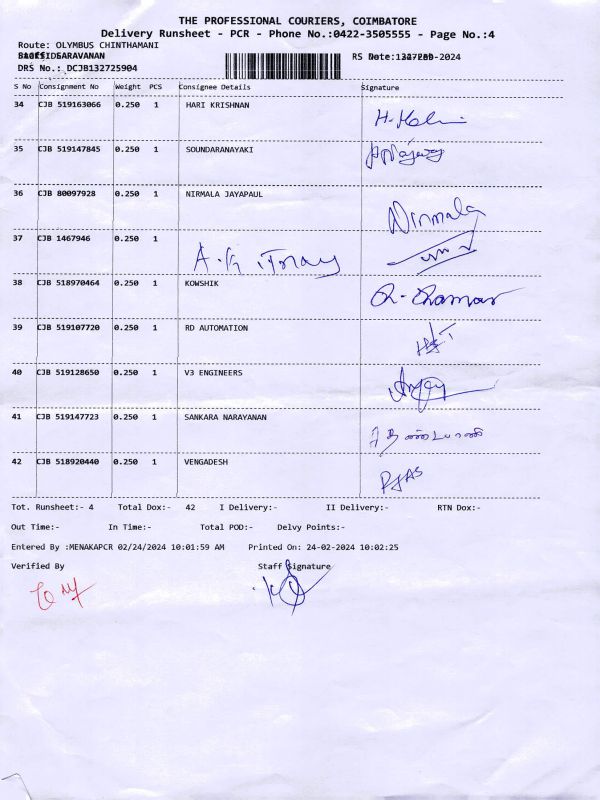 THE PROFESSIONAL COURIERS, COIMBATORE
Delivery Runsheet - PCR - Phone No.:0422-3505555 - Page No.:4
Route: OLYMBUS CHINTHAMANI
SARAVANAN
RS Date: -2024
DRS No.: DCJB132725904
S No Consignment No Weight PCS Consignee Details Signature
34 CJB 519163066 0.250 1 HARI KRISHNAN
35 CJB 519147845 0.250 1 SOUNDARANAYAKI
36 CJB 80097928 0.250 1 NIRMALA JAYAPAUL
Nirmala
37 CJB 1467946 0.250 1
38 CJB 518970464 0.250 1 KOWSHIK
39 CJB 519107720 0.250 1 RD AUTOMATION
40 CJB 519128650 0.250 1 V3 ENGINEERS
41 CJB 519147723 0.250 1 SANKARA NARAYANAN
42 CJB 518920440 0.250 1 VENGADESH
Tot. Runsheet:- 4 Total Dox:- 42 I Delivery:- II Delivery:- RTN Dox:-
Out Time:- In Time:- Total POD:- Delvy Points:-
Entered By :MENAKAPCR 02/24/2024 10:01:59 AM Printed On: 24-02-2024 10:02:25
Verified By Staff Signature